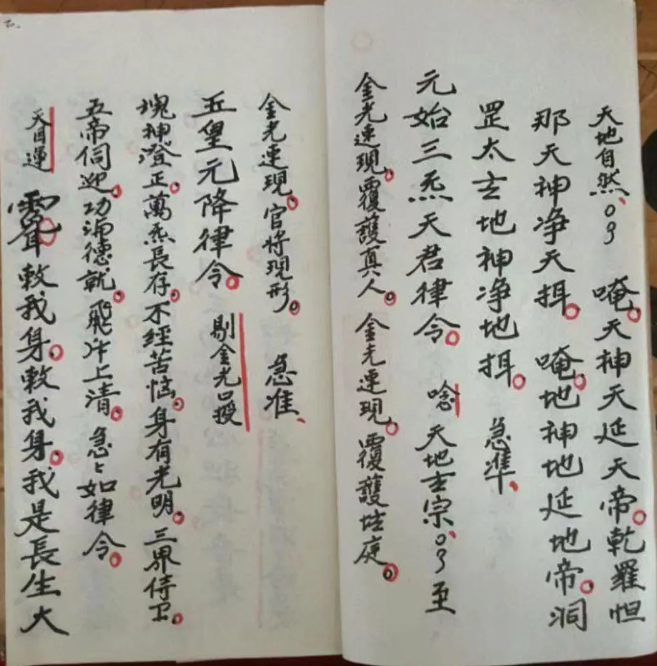 天地自然、〇〇 唵。天神天延天帝。乾羅怛
那天神净天揖。唵。地神地延地帝。洞
罡太玄地神净地揖。 急準、
元始三炁天君律令。 唸 天地玄宗。〇〇至
金光速現。覆護真人。金光速現。覆護坛庭。
金光速現。官将現形。 急准、
五皇元降律令。剔金光口授
魂神澄正。萬炁長存。不經苦恼。身有光明。三界侍卫。
五帝伺迎。功满德就。飛升上清。急々如律令。
天目運 敕我身。敕我身。我是長生大